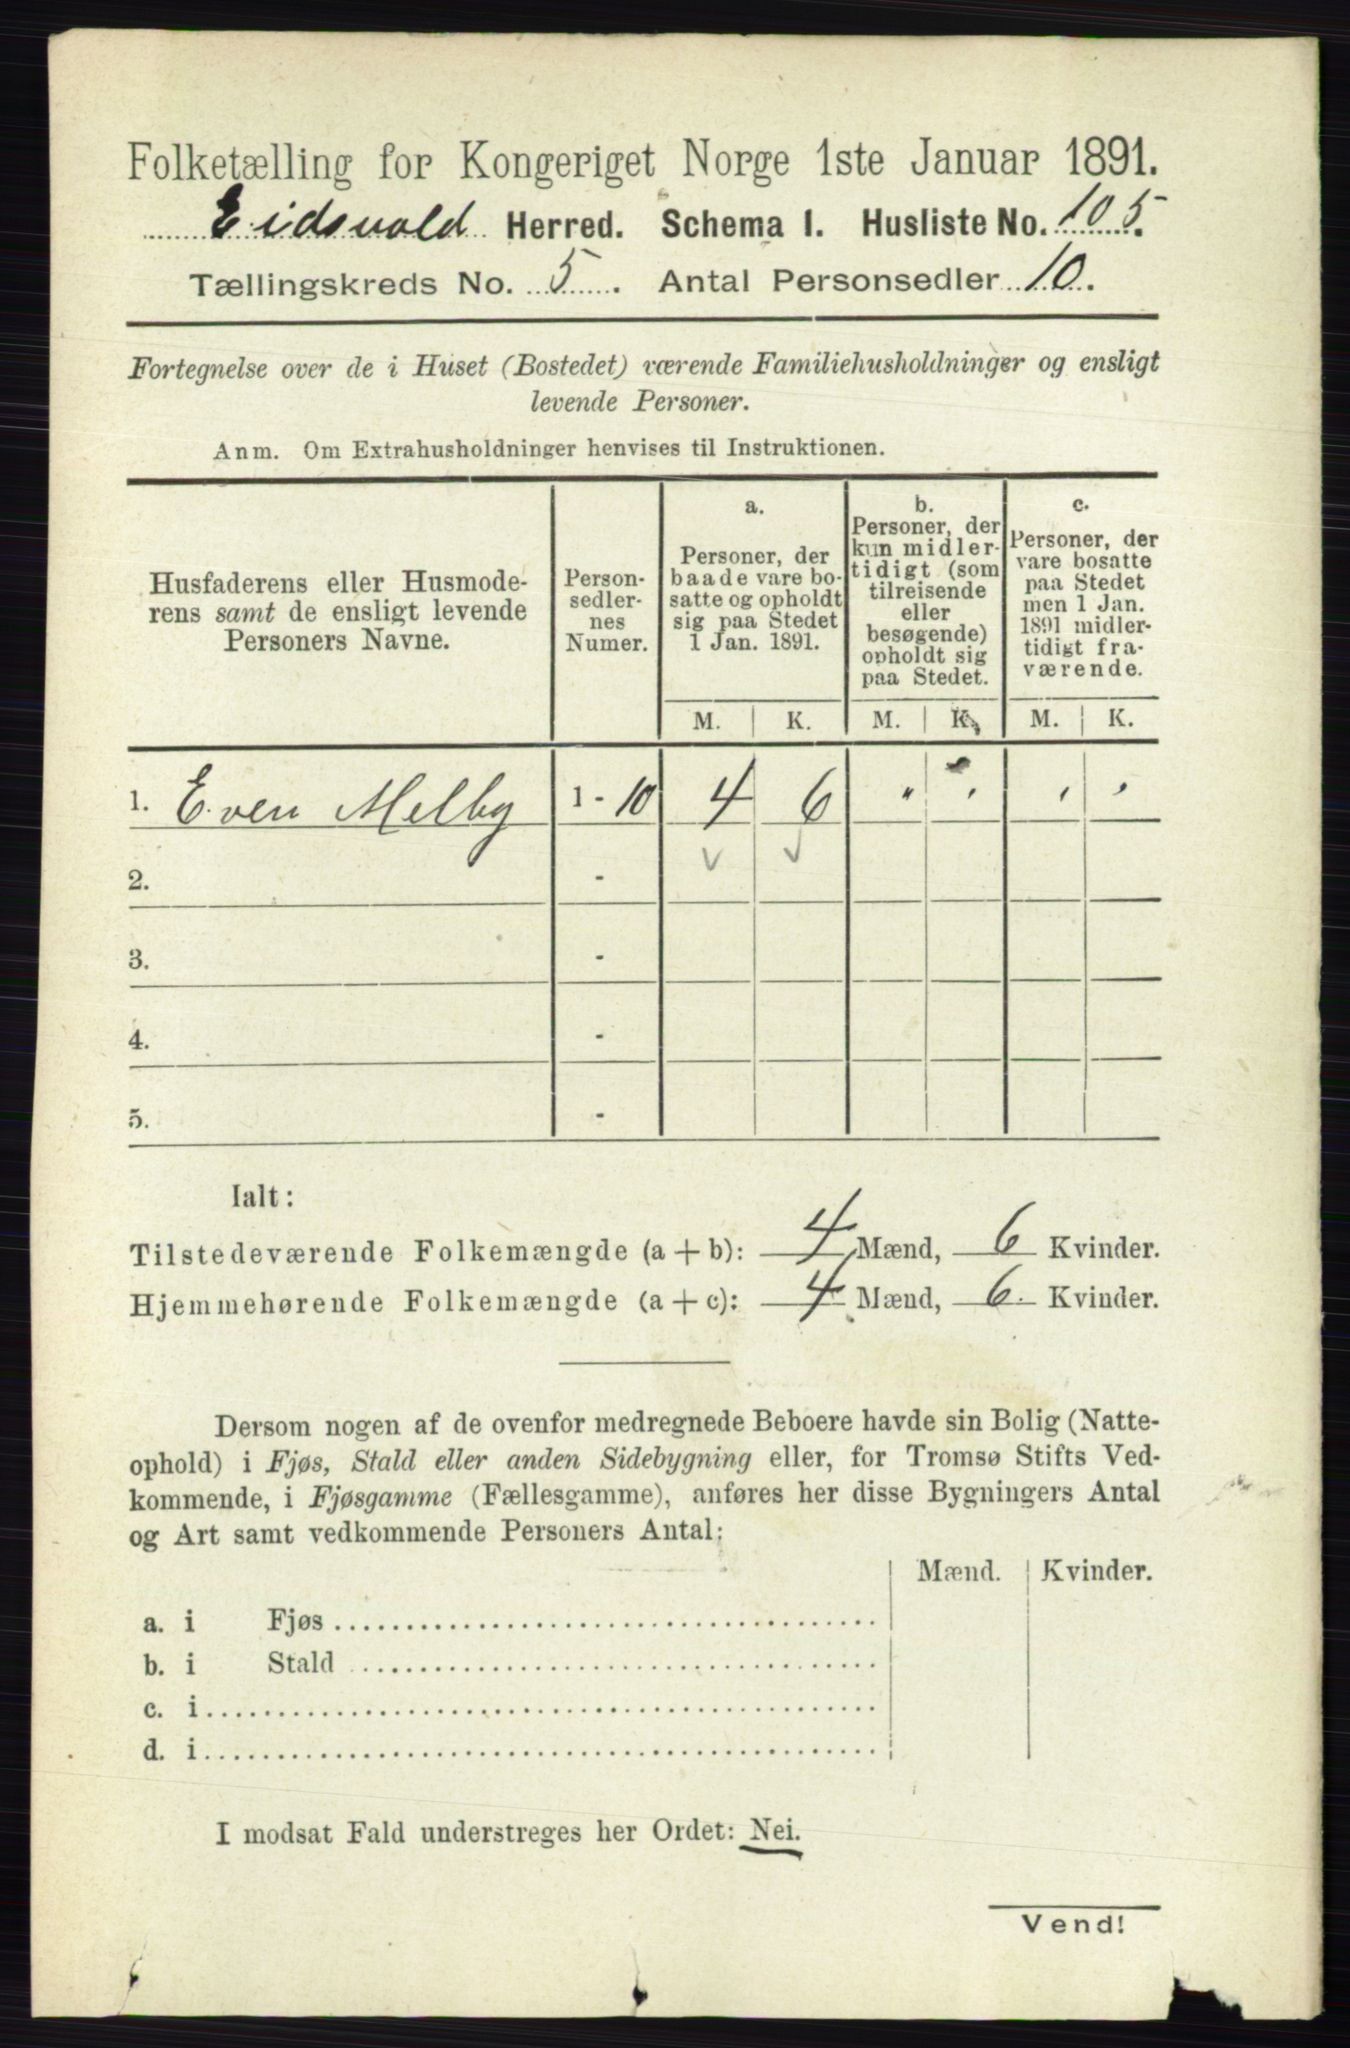 Folketælling for Kongeriget Norge 1ste Januar 1891.
Eidsvold Herred. Schema I. Husliste No. 105.
Tællingskreds No. 5. Antal Personsedler 10.
Fortegnelse over de i Huset (Bostedet) værende Familiehusholdninger og ensligt
levende Personer.
Anm. Om Extrahusholdninger henvises til Instruktionen.
Husfaderens eller Husmode-
rens samt de ensligt levende
Personers Navne.
Person-
sedler-
nes
Numer.
a.
Personer, der
baade vare bo-
satte og opholdt
sig paa Stedet
1 Jan. 1891.
b.
Personer, der
kun midler-
tidigt (som
tilreisende
eller
besøgende)
opholdt sig
paa Stedet.
c.
Personer, der
vare bosatte
paa Stedet
men 1 Jan.
1891 midler-
tidigt fra-
værende.
M. K. M. K. M. K.
1. Even Melby 1 - 10 4 6 " " " "
2. -
3. -
4. -
5. -
Ialt:
Tilstedeværende Folkemængde (a + b): 4 Mænd, 6 Kvinder.
Hjemmehørende Folkemængde (a + c): 4 Mænd, 6 Kvinder.
Dersom nogen af de ovenfor medregnede Beboere havde sin Bolig (Natte-
ophold) i Fjøs, Stald eller anden Sidebygning eller, for Tromsø Stifts Ved-
kommende, i Fjøsgamme (Fællesgamme), anføres her disse Bygningers Antal
og Art samt vedkommende Personers Antal:
Mænd. Kvinder.
a. i Fjøs
b. i Stald
c. i
d. i
I modsat Fald understreges her Ordet: Nei.
Vend!